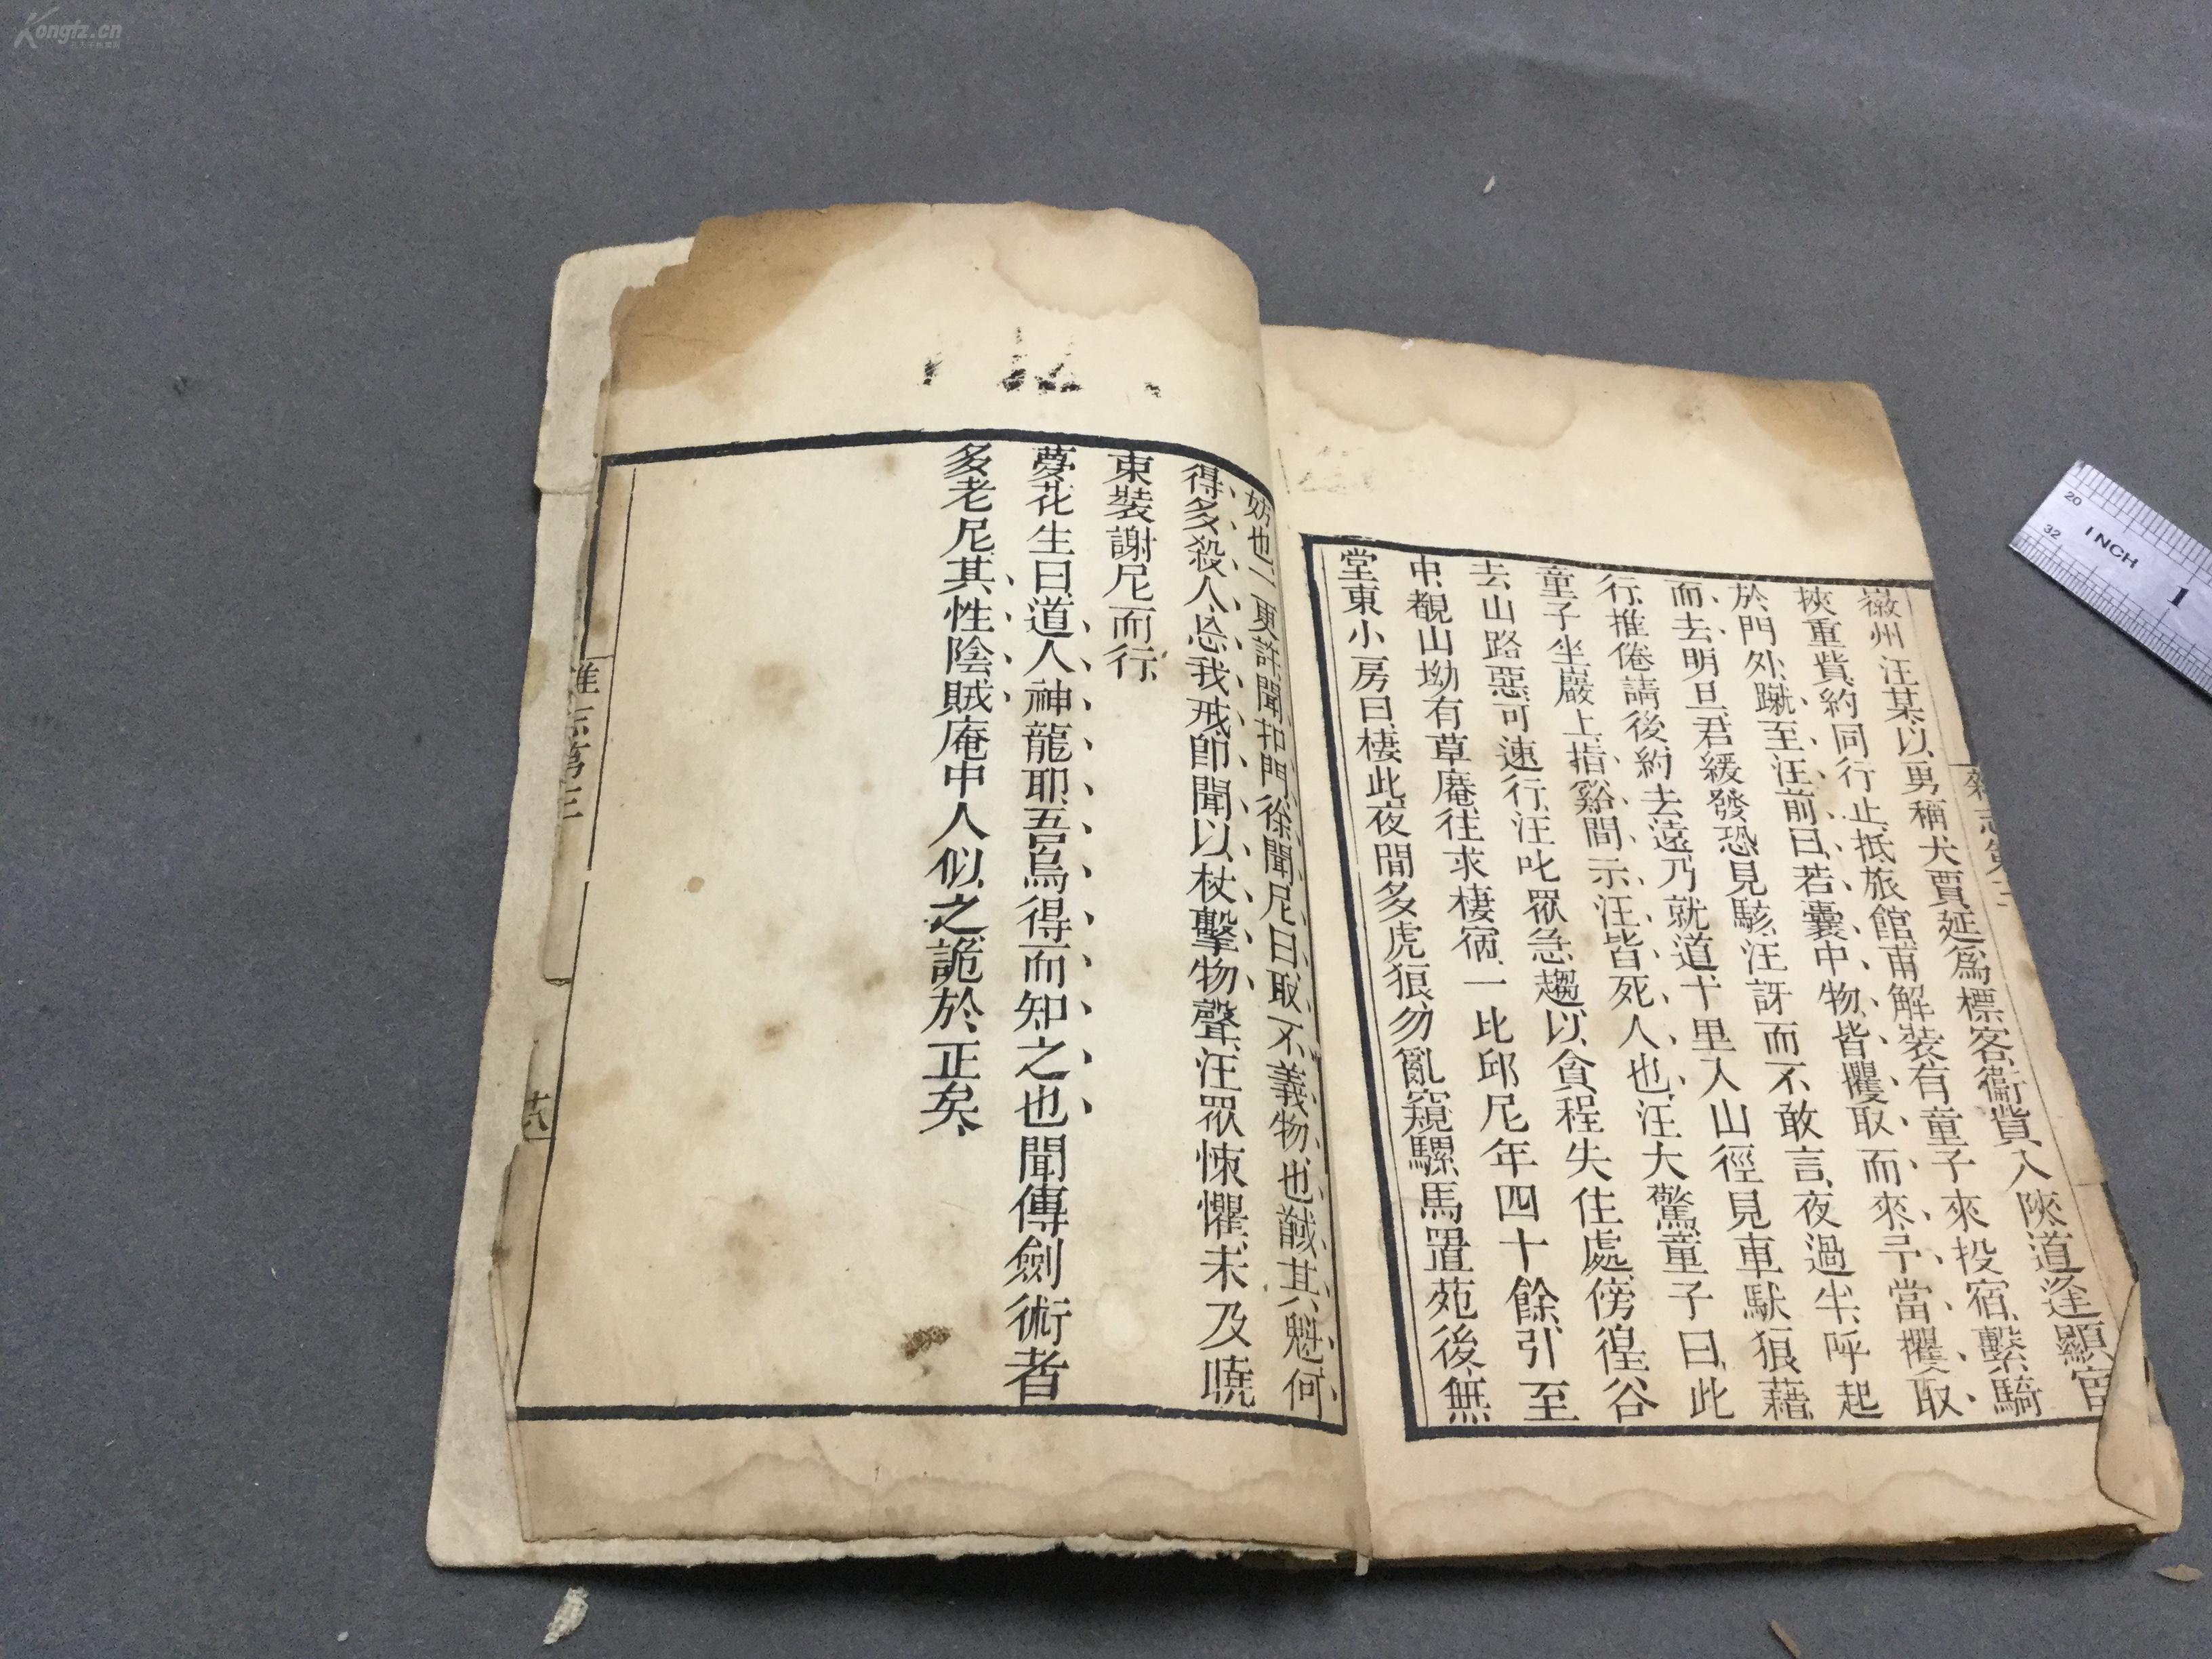 徽州汪某以勇稱大賈延為標客衞貲入陝道逢顯宦
挾重貲約同行止抵旅館甫解裝有童子來投宿繫騎
於門外蹴至汪前曰若囊中物皆攫取而來予當攫取
而去明旦君緩發恐見駭汪訝而不敢言夜過半呼起
行推倦請後約去遠乃就道十里入山徑見車馱狼藉
童子坐巖上指谿間示汪皆死人也汪大驚童子曰此
去山路惡可速行汪叱眾急趨以貪程失住處傍徨谷
中覩山坳有草庵往求棲宿一比邱尼年四十餘引至
堂東小房曰棲此夜間多虎狼勿亂窺騾馬置苑後無
妨也二更許聞扣門徐聞尼曰取不義物也馘其魁何
得多殺人忘我戒即聞以杖擊物聲汪眾悚懼未及曉
束裝謝尼而行
夢花生曰道人神龍耶吾烏得而知之也聞傳劍術者
多老尼其性陰賊庵中人似之詭於正矣
志第三
十八
20
32
INCH
1
Kongfz.cn